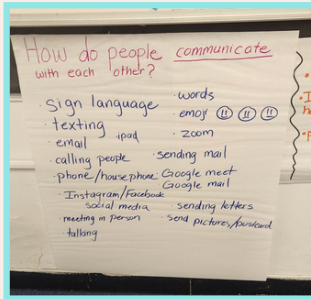 How do people communicate
with each other?
· sign language
· texting
ipad
· email
· calling people
· phone/house phone
· Instagram/Facebook
social media
· meeting in person
· talking
· words
· emoji
· zoom
· sending mail
Google meet
Google mail
· sending letters
· send pictures/postcard